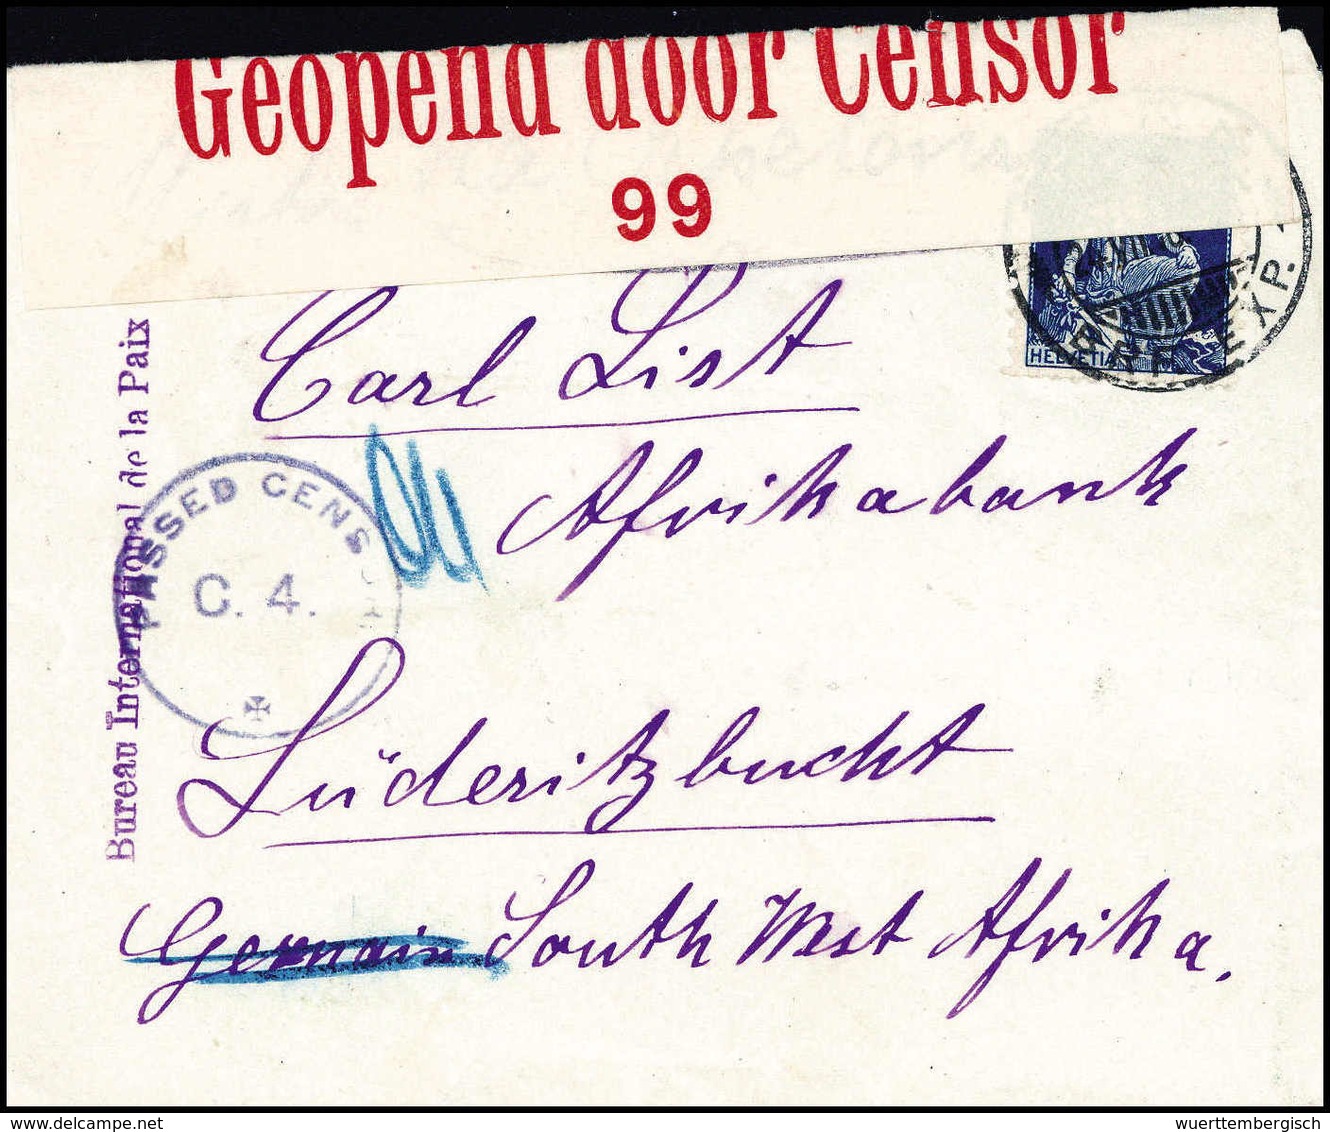 Geopend door Censor
99
HELVETIA
BRF. EXP.
Carl List
Afrikabank
Bureau International de la Paix
PASSED CENSOR
C. 4.
Lüderitzbucht
Germain South West Afrika.
wuerttembergisch
www.delcampe.net